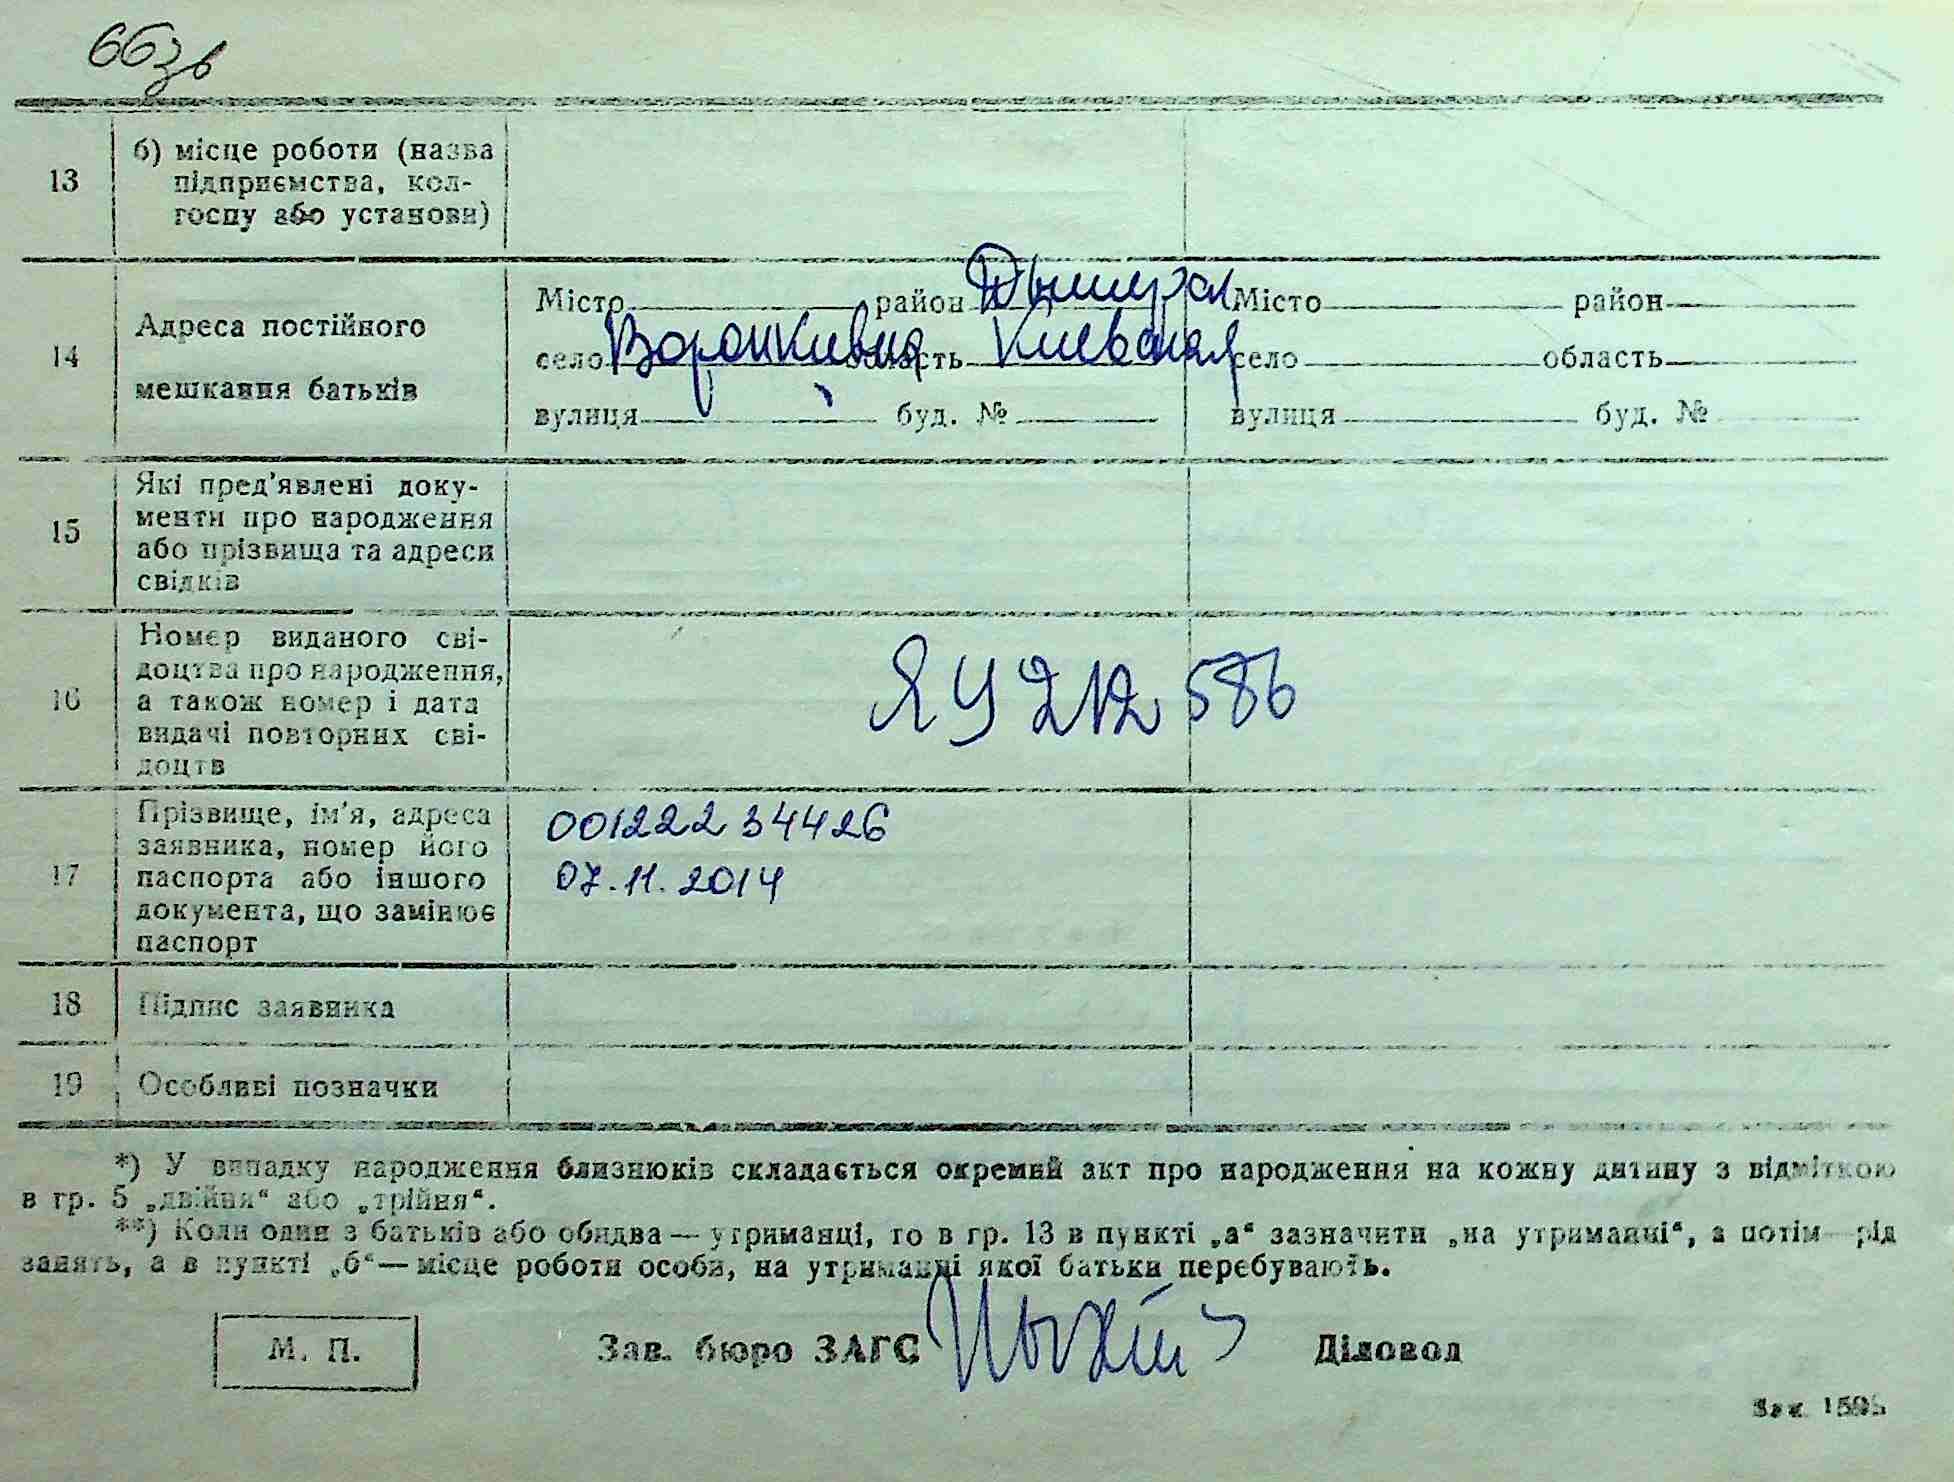 66зв
13
б) місце роботи (назва
підприємства, кол-
госпу або установи)
14
Адреса постійного
мешкання батьків
Місто район Місто район
село Воронкивци область Киевская село область
вулиця буд. № вулиця буд. №
15
Які пред'явлені доку-
менти про народження
або прізвища та адреси
свідків
16
Номер виданого сві-
доцтва про народження,
а також номер і дата
видачі повторних сві-
доцтв
ЯУ 212 586
17
Прізвище, ім'я, адреса
заявника, номер його
паспорта або іншого
документа, що замінює
паспорт
00122234426
07.11.2014
18
Підпис заявника
19
Особливі позначки
*) У випадку народження близнюків складається окремий акт про народження на кожну дитину з відміткою
в гр. 5 „двійня“ або „трійня“.
**) Коли один з батьків або обидва — утриманці, то в гр. 13 в пункті „а“ зазначити „на утриманні“, а потім — рід
занять, а в пункті „б“ — місце роботи особи, на утриманні якої батьки перебувають.
М. П.
Зав. бюро ЗАГС Діловод
Зак. 1595